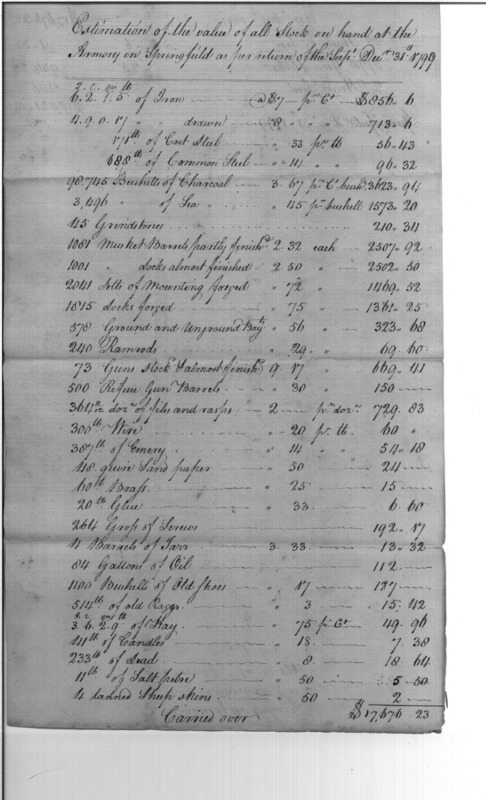 Estimation of the value of all Stock on hand at the
Armory in Springfield as per return of the Supt. Decr. 31st 1799
T. C. qr lb
6. 2. 1. 5 of Iron @ $7 pr. Ct. $856. 6
4. 9. 0. 17 " drawn " 8 " " 713. 6
171 lb of Cast Steel " 33 pr lb 56. 43
688 lb of Common Steel " 14 " " 96. 32
98,745 Bushells of Charcoal 3. 67 pr. Ct. bush 3623. 94
3,496 " of Sea " 45 pr bushell 1573. 20
45 Grindstones 210. 34
1081 Musket Barrels partly finish'd 2. 32 each 2507. 92
1001 " Locks almost finished 2. 50 " 2502. 50
2041 Setts of Mounting forged " 72 " 1469. 52
1815 Locks forged " 75 " 1361. 25
578 Ground and Unground Bayts. " 56 " 323. 68
240 Ramrods " 29 " 69. 60
73 Guns Stock'd almost finish'd 9. 17 " 669. 41
500 Refuse Gun Barrels " 30 " 150
364 doz. of files and rasps 2 pr. doz. 729. 83
300 lb Wire " 20 pr. lb. 60 "
387 lb of Emery " 14 " " 54. 18
48 quire Sand paper " 50 24
60 lb Brass " 25 15
20 lb Glue " 33 6. 60
264 Gross of Screws 192. 17
4 Barrels of Tarr 3. 33 13. 32
84 Gallons of Oil 112
1100 Bushells of Old Shoes " 17 187
514 lb of old Raggs " 3 15. 42
T. C. qr lb
3. 6. 2. 9 of Hay " 75 pr. Ct. 49. 96
41 lb of Candles " 18 7. 38
233 lb of Lead " 8 18. 64
11 lb of Salt petre " 50 5. 50
4 tanned Sheep skins " 50 2
Carried over $17,676. 23